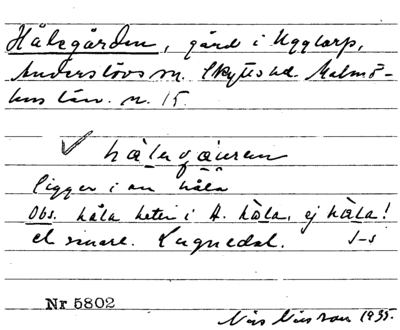 Hålegården, gård i Uggtorp,
Anderslövs sn. Skytts hd. Malmö-
hus län. n. 15.
hålegåuren
ligger i en håla
Obs. håla heter i A. håla, ej håla!
el snare. Lugnedal. J-s
Nr 5802
Nils Nilsson 1935.